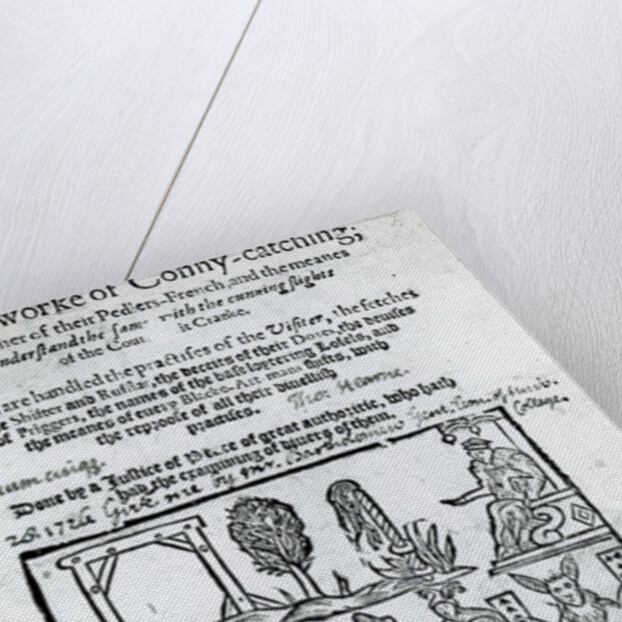 worke of Conny-catching;
ner of their Pedlers-French, and the meanes
nderstand the sam- with the cunning slights
of the Coun it Cranke.
are handled the practises of the Visiter, the fetches
e Shifter and Rufflar, the deceits of their Doxes, the deuises
of Priggers, the names of the base loytering Losels, and
the meanes of euery Blacke-Art-mans shifts, with
the reproofe of all their diuellish
practises.
Tho: Hearne.
Done by a Justice of Peace of great authoritie, who hath
had the examining of diuers of them.
1726 Given me by Mr. Bartholomew Gent. Com. of Univ.
College.